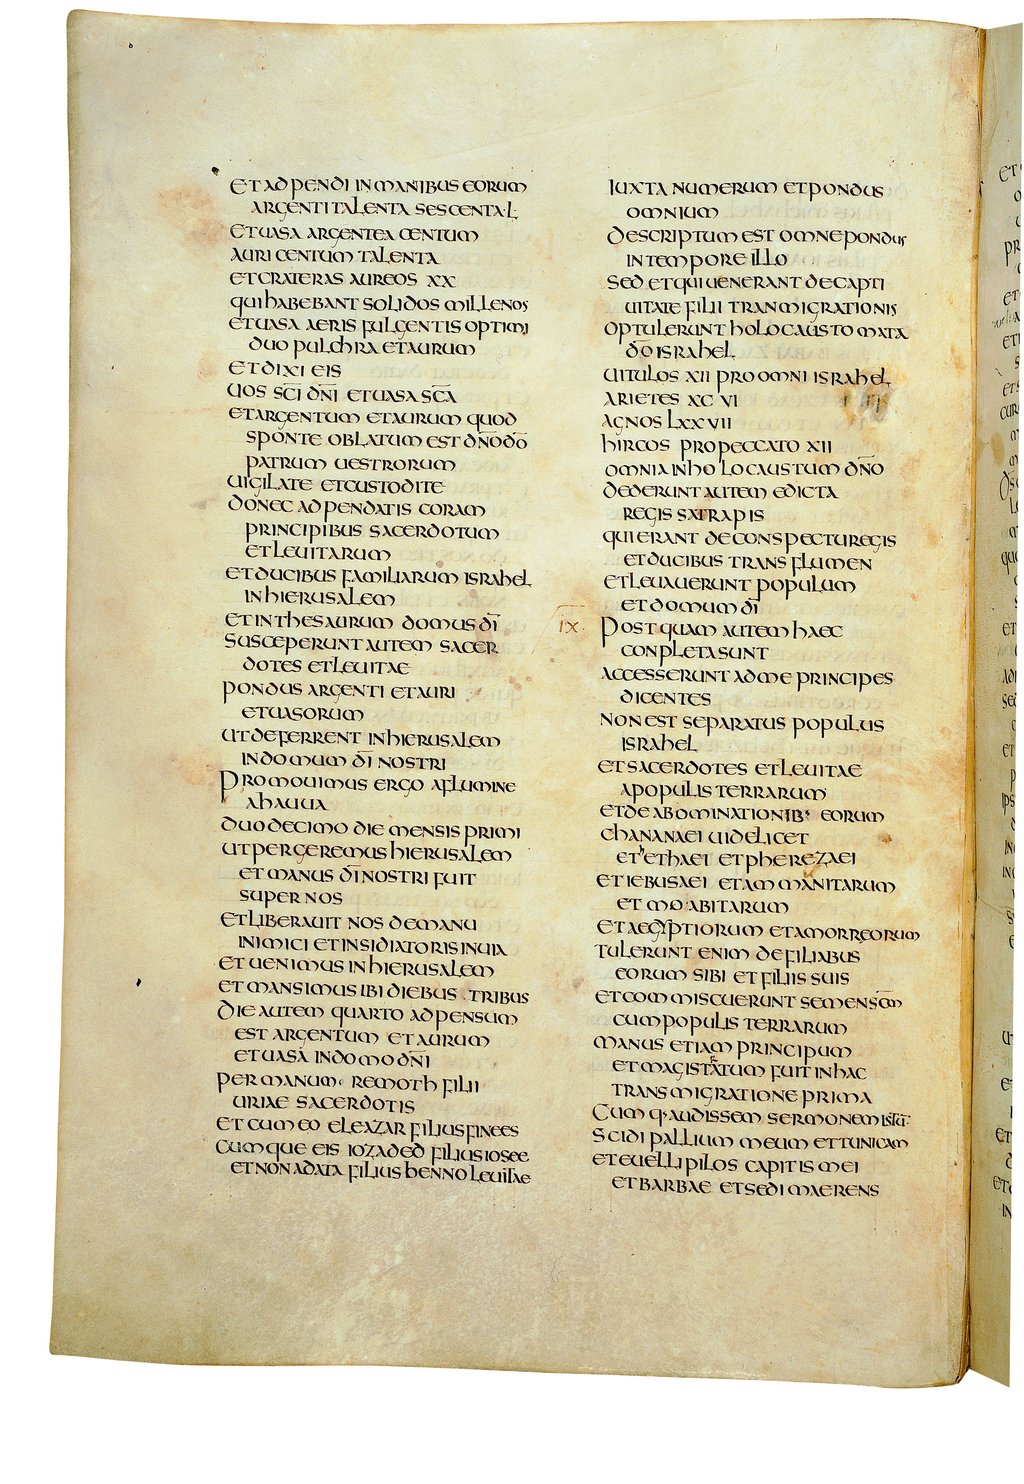 ET ADPENDI IN MANIBUS EORUM
ARGENTI TALENTA SESCENTA·L
ET UASA ARGENTEA CENTUM
AURI CENTUM TALENTA
ET CRATERAS AUREOS XX
QUI HABEBANT SOLIDOS MILLENOS
ET UASA AERIS FULGENTIS OPTIMI
DUO PULCHRA ET AURUM
ET DIXI EIS
UOS SC̄I DN̄I ET UASA SC̄A
ET ARGENTUM ET AURUM QUOD
SPONTE OBLATUM EST DN̄O DŌ
PATRUM UESTRORUM
UIGILATE ET CUSTODITE
DONEC ADPENDATIS CORAM
PRINCIPIBUS SACERDOTUM
ET LEUITARUM
ET DUCIBUS FAMILIARUM ISRAHEL
IN HIERUSALEM
ET IN THESAURUM DOMUS DĪ
SUSCEPERUNT AUTEM SACER
DOTES ET LEUITAE
PONDUS ARGENTI ET AURI
ET UASORUM
UT DEFERRENT IN HIERUSALEM
IN DOMUM DĪ NOSTRI
PROMOUIMUS ERGO A FLUMINE
AHAUUA
DUODECIMO DIE MENSIS PRIMI
UT PERGEREMUS HIERUSALEM
ET MANUS DĪ NOSTRI FUIT
SUPER NOS
ET LIBERAUIT NOS DE MANU
INIMICI ET INSIDIATORIS IN UIA
ET UENIMUS IN HIERUSALEM
ET MANSIMUS IBI DIEBUS TRIBUS
DIE AUTEM QUARTO ADPENSUM
EST ARGENTUM ET AURUM
ET UASA IN DOMO DN̄I
PER MANUM REMOTH FILII
URIAE SACERDOTIS
ET CUM EO ELEAZAR FILIUS FINEES
CUMQUE EIS IOZADED FILIUS IOSEE
ET NONADAIA FILIUS BENNO LEUITAE
IUXTA NUMERUM ET PONDUS
OMNIUM
DESCRIPTUM EST OMNE PONDUS
IN TEMPORE ILLO
SED ET QUI UENERANT DE CAPTI
UITATE FILII TRANMIGRATIONIS
OPTULERUNT HOLOCAUSTOMATA
DŌ ISRAHEL
UITULOS XII PRO OMNI ISRAHEL
ARIETES XC VI
AGNOS LXXVII
HIRCOS PRO PECCATO XII
OMNIA IN HOLOCAUSTUM DN̄O
DEDERUNT AUTEM EDICTA
REGIS SATRAPIS
QUI ERANT DE CONSPECTU REGIS
ET DUCIBUS TRANS FLUMEN
ET LEUAUERUNT POPULUM
ET DOMUM DĪ
IX POST QUAM AUTEM HAEC
CONPLETA SUNT
ACCESSERUNT AD ME PRINCIPES
DICENTES
NON EST SEPARATUS POPULUS
ISRAHEL
ET SACERDOTES ET LEUITAE
A POPULIS TERRARUM
ET DE ABOMINATIONIB· EORUM
CHANANAEI UIDELICET
ET hETHAEI ET PHEREZAEI
ET IEBUSAEI ET AMMANITARUM
ET MOABITARUM
ET AEGYPTIORUM ET AMORREORUM
TULERUNT ENIM DE FILIABUS
EORUM SIBI ET FILIIS SUIS
ET COMMISCUERUNT SEMEN SC̄M
CUM POPULIS TERRARUM
MANUS ETIAM PRINCIPUM
ET MAGISTRATUM FUIT IN HAC
TRANSMIGRATIONE PRIMA
CUMQ· AUDISSEM SERMONEM ISTŪ
SCIDI PALLIUM MEUM ET TUNICAM
ET EUELLI PILOS CAPITIS MEI
ET BARBAE ET SEDI MAERENS